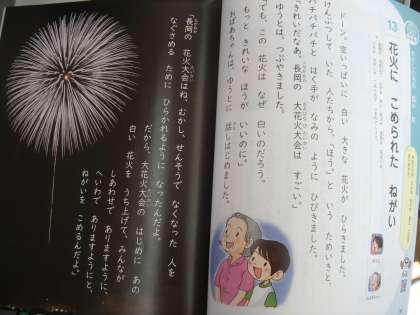 13
花火に こめられた ねがい
ドーン。空いっぱいに 白い 大きな 花火が ひらきました。
けんぶつして いた 人たちから、「ほうっ」と いう ためいきと、
パチパチパチと はく手が なみの ように ひびきました。
「きれいだなあ。長岡の 花火大会は すごい。」
ゆうとは、つぶやきました。
でも、この 花火は なぜ 白いのだろう。
もっと きれいな ほうが いいのに。
おばあちゃんは、ゆうとに 話しはじめました。
「長岡の 花火大会はね、むかし、せんそうで なくなった 人を
なぐさめる ために ひらかれるように なったんだよ。
だから、大花火大会の はじめに あの
白い 花火を うち上げて、みんなが
しあわせで ありますように、
へいわで ありますようにと、
ねがいを こめるんだよ。」